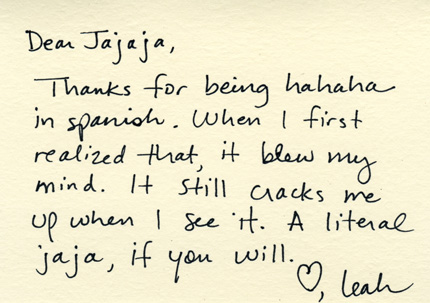 Dear Jajaja,
Thanks for being hahaha
in spanish. When I first
realized that, it blew my
mind. It still cracks me
up when I see it. A literal
jaja, if you will.
♡, leah